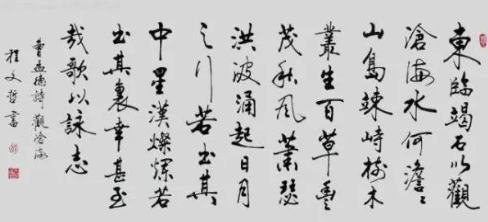 東臨竭石以觀
滄海水何澹〻
山島竦峙樹木
叢生百草豐
茂秋風蕭瑟
洪波涌起日月
之行若出其
中星漢燦爛若
出其裏幸甚至
哉歌以詠志
曹孟德詩觀滄海
程文哲書